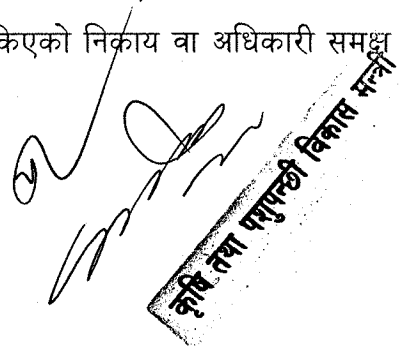 किएको निकाय वा अधिकारी समक्ष
कृषि तथा पशुपन्छी विकास मन्त्री